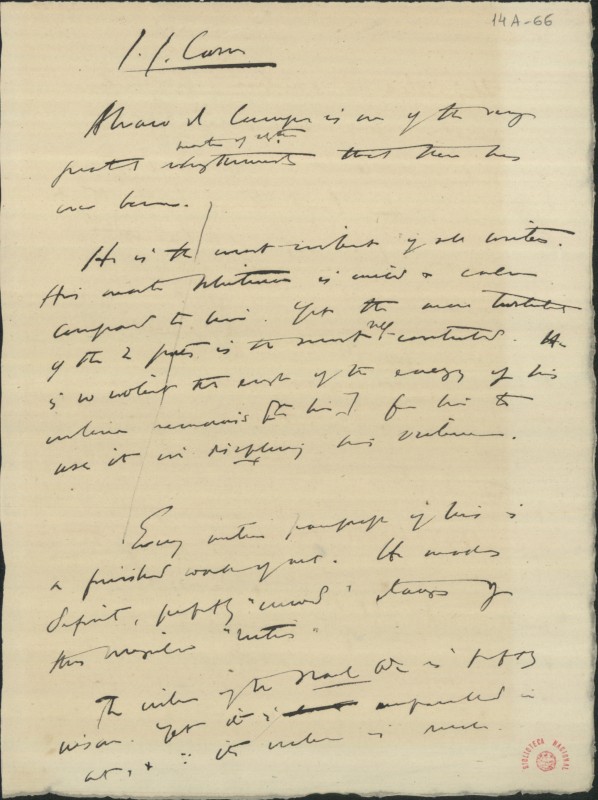 14A-66
I. I. Crosse
Alvaro de Campos is one of the very
master of rhythm
greatest rhythmists that there has
ever been.
He is the most violent of all writers.
His master Whitman is mild & calm
compared to him. Yet the more turbulent
of the 2 poets is the most self-controlled. He
is so violent that enough of the energy of his
violence remains [to him] for him to
use it in disciplining his violence.
Every entire paragraph of his is
a finished work of art. He makes
definite, perfectly "curved" stanzas of
this irregular "metre".
The violence of the Naval Ode is perfectly
insane. Yet it is unparalleled in
art, & its violence is such
BIBLIOTECA NACIONAL